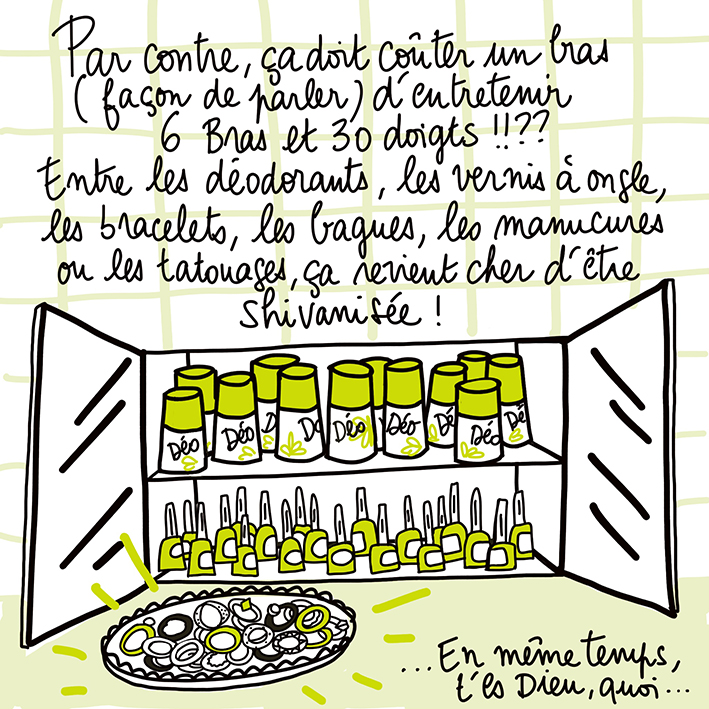 Par contre, ça doit coûter un bras
(façon de parler) d'entretenir
6 Bras et 30 doigts !!??
Entre les déodorants, les vernis à ongle,
les bracelets, les bagues, les manucures
ou les tatouages, ça revient cher d'être
shivanisée !
Déo Déo D Do Déo Déo Dé Déo Dé
...En même temps,
t'es Dieu, quoi...